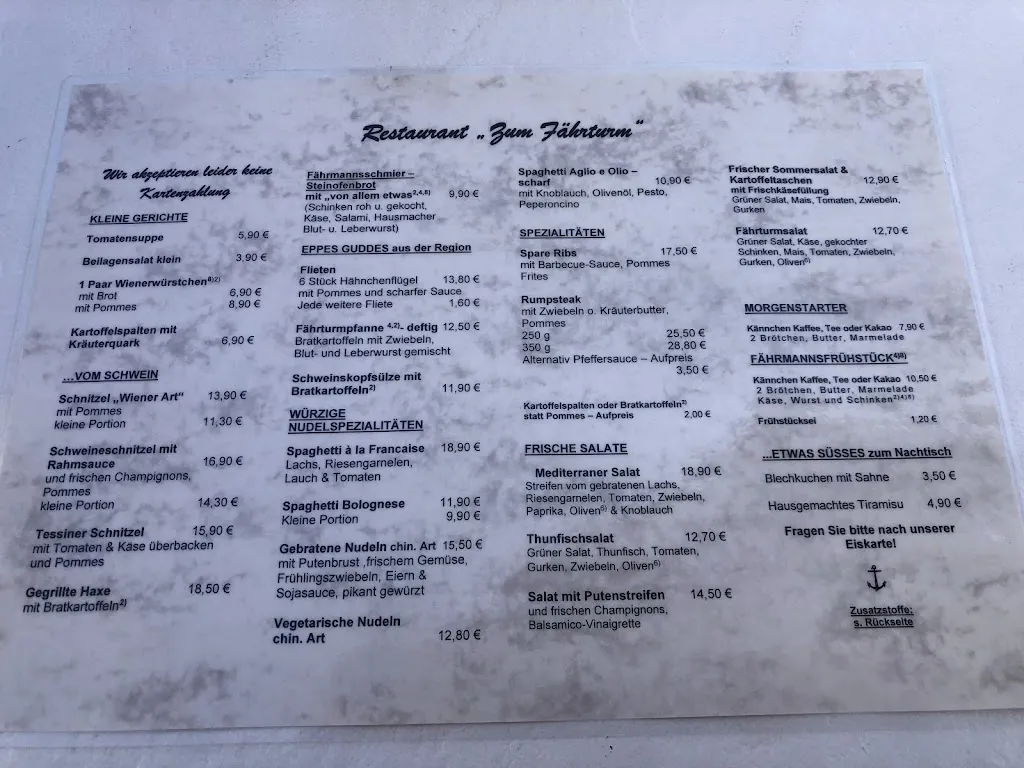 Restaurant „Zum Fährturm“
Wir akzeptieren leider keine
Kartenzahlung
KLEINE GERICHTE
Tomatensuppe 5,90 €
Beilagensalat klein 3,90 €
1 Paar Wienerwürstchen⁸⁾²⁾
mit Brot 6,90 €
mit Pommes 8,90 €
Kartoffelspalten mit
Kräuterquark 6,90 €
...VOM SCHWEIN
Schnitzel „Wiener Art“ 13,90 €
mit Pommes
kleine Portion 11,30 €
Schweineschnitzel mit
Rahmsauce 16,90 €
und frischen Champignons,
Pommes
kleine Portion 14,30 €
Tessiner Schnitzel 15,90 €
mit Tomaten & Käse überbacken
und Pommes
Gegrillte Haxe 18,50 €
mit Bratkartoffeln²⁾
Fährmannsschmier –
Steinofenbrot
mit „von allem etwas²,⁴,⁸⁾ 9,90 €
(Schinken roh u. gekocht,
Käse, Salami, Hausmacher
Blut- u. Leberwurst)
EPPES GUDDES aus der Region
Flieten
6 Stück Hähnchenflügel 13,80 €
mit Pommes und scharfer Sauce
Jede weitere Fliete 1,60 €
Fährturmpfanne ⁴,²⁾- deftig 12,50 €
Bratkartoffeln mit Zwiebeln,
Blut- und Leberwurst gemischt
Schweinskopfsülze mit
Bratkartoffeln²⁾ 11,90 €
WÜRZIGE
NUDELSPEZIALITÄTEN
Spaghetti à la Francaise 18,90 €
Lachs, Riesengarnelen,
Lauch & Tomaten
Spaghetti Bolognese 11,90 €
Kleine Portion 9,90 €
Gebratene Nudeln chin. Art 15,50 €
mit Putenbrust ,frischem Gemüse,
Frühlingszwiebeln, Eiern &
Sojasauce, pikant gewürzt
Vegetarische Nudeln
chin. Art 12,80 €
Spaghetti Aglio e Olio –
scharf 10,90 €
mit Knoblauch, Olivenöl, Pesto,
Peperoncino
SPEZIALITÄTEN
Spare Ribs 17,50 €
mit Barbecue-Sauce, Pommes
Frites
Rumpsteak
mit Zwiebeln o. Kräuterbutter,
Pommes
250 g 25,50 €
350 g 28,80 €
Alternativ Pfeffersauce – Aufpreis
3,50 €
Kartoffelspalten oder Bratkartoffeln²⁾
statt Pommes – Aufpreis 2,00 €
FRISCHE SALATE
Mediterraner Salat 18,90 €
Streifen vom gebratenen Lachs,
Riesengarnelen, Tomaten, Zwiebeln,
Paprika, Oliven⁶⁾ & Knoblauch
Thunfischsalat 12,70 €
Grüner Salat, Thunfisch, Tomaten,
Gurken, Zwiebeln, Oliven⁶⁾
Salat mit Putenstreifen 14,50 €
und frischen Champignons,
Balsamico-Vinaigrette
Frischer Sommersalat &
Kartoffeltaschen 12,90 €
mit Frischkäsefüllung
Grüner Salat, Mais, Tomaten, Zwiebeln,
Gurken
Fährturmsalat 12,70 €
Grüner Salat, Käse, gekochter
Schinken, Mais, Tomaten, Zwiebeln,
Gurken, Oliven⁶⁾
MORGENSTARTER
Kännchen Kaffee, Tee oder Kakao 7,90 €
2 Brötchen, Butter, Marmelade
FÄHRMANNSFRÜHSTÜCK⁴⁾⁸⁾
Kännchen Kaffee, Tee oder Kakao 10,50 €
2 Brötchen, Butter, Marmelade
Käse, Wurst und Schinken²⁾⁴⁾⁸⁾
Frühstücksei 1,20 €
...ETWAS SÜSSES zum Nachtisch
Blechkuchen mit Sahne 3,50 €
Hausgemachtes Tiramisu 4,90 €
Fragen Sie bitte nach unserer
Eiskarte!
Zusatzstoffe:
s. Rückseite